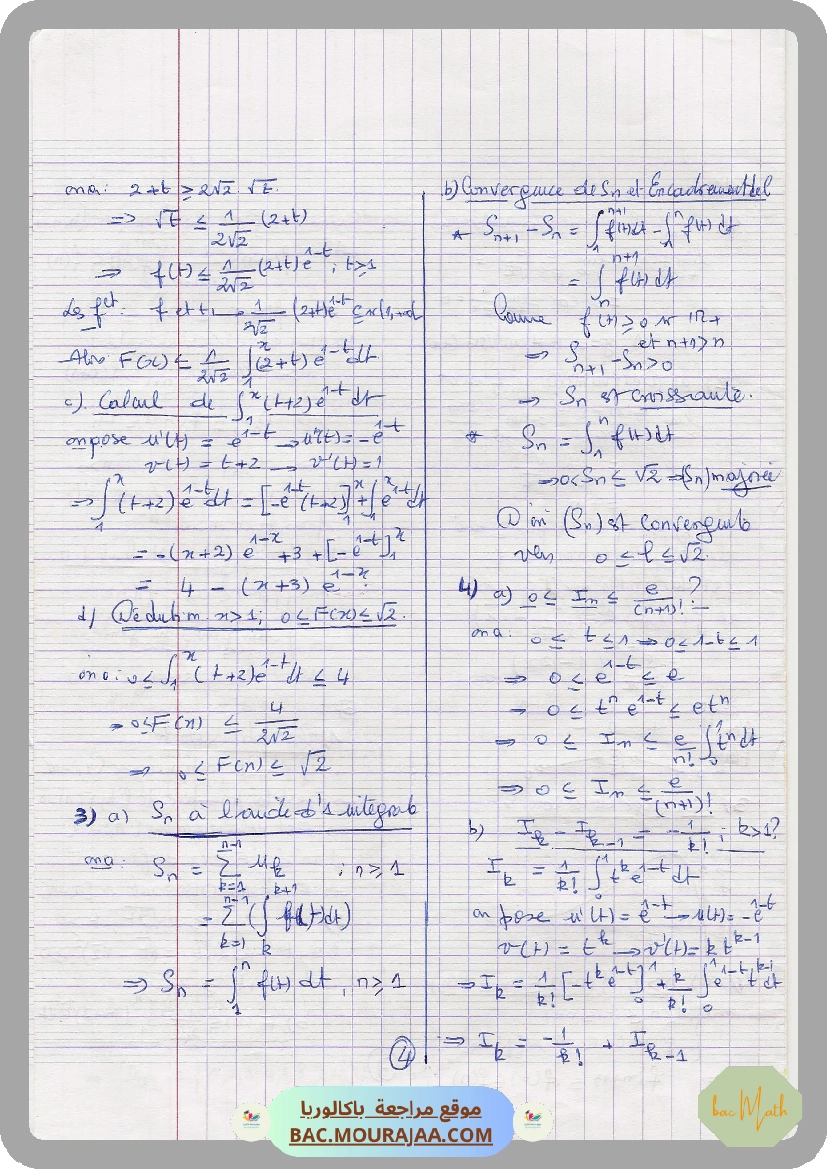 on a : 2+t ≥ 2√2 √t.
⇒ √t ≤ 1/(2√2) (2+t)
⇒ f(t) ≤ 1/(2√2) (2+t) e^{1-t} ; t ≥ 1
Les fct : f et t ↦ 1/(2√2) (2+t)e^{1-t}
Alors F(x) ≤ 1/(2√2) ∫_1^x (2+t) e^{1-t} dt.
c). Calcul de ∫_1^x (t+2) e^{1-t} dt
on pose u'(t) = e^{1-t} → u(t) = -e^{1-t}
v(t) = t+2 → v'(t) = 1
⇒ ∫_1^x (t+2) e^{1-t} dt = [-e^{1-t}(t+2)]_1^x + ∫_1^x e^{1-t} dt
= -(x+2) e^{1-x} + 3 + [-e^{1-t}]_1^x
= 4 - (x+3) e^{1-x}.
d) x ≥ 1 ; 0 ≤ F(x) ≤ √2.
on a : 0 ≤ ∫_1^x (t+2)e^{1-t} dt ≤ 4
⇒ 0 ≤ F(x) ≤ 4/(2√2)
⇒ 0 ≤ F(x) ≤ √2
3) a) Sn à l'aide d's intégrale
on a : Sn = Σ_{k=1}^{n-1} u_k ; n ≥ 1
= Σ_{k=1}^{n-1} (∫_k^{k+1} f(t) dt)
⇒ Sn = ∫_1^n f(t) dt, n ≥ 1
b) Convergence de Sn et Encadrement de l
* S_{n+1} - Sn = ∫_1^{n+1} f(t) dt - ∫_1^n f(t) dt
= ∫_n^{n+1} f(t) dt
Comme f(t) ≥ 0 sr IR+
et n+1 > n
⇒ S_{n+1} - Sn > 0
→ Sn est croissante.
* Sn = ∫_1^n f(t) dt
⇒ 0 < Sn ≤ √2 ⇒ (Sn) majorée
(Sn) est convergente
vers 0 ≤ l ≤ √2.
4) a) 0 ≤ In ≤ e/(n+1)! ?
on a : 0 ≤ t ≤ 1 ⇒ 0 ≤ 1-t ≤ 1
⇒ 0 ≤ e^{1-t} ≤ e
⇒ 0 ≤ t^n e^{1-t} ≤ e t^n
⇒ 0 ≤ In ≤ e/n! ∫_0^1 t^n dt
⇒ 0 ≤ In ≤ e/(n+1)!
b) I_k - I_{k-1} = -1/k! ; k ≥ 1 ?
I_k = 1/k! ∫_0^1 t^k e^{1-t} dt
on pose u'(t) = e^{1-t} → u(t) = -e^{1-t}
v(t) = t^k → v'(t) = k t^{k-1}
⇒ I_k = 1/k! [-t^k e^{1-t}]_0^1 + k/k! ∫_0^1 e^{1-t} t^{k-1} dt
⇒ I_k = -1/k! + I_{k-1}
4
موقع مراجعة باكالوريا
BAC.MOURAJAA.COM
bac Math